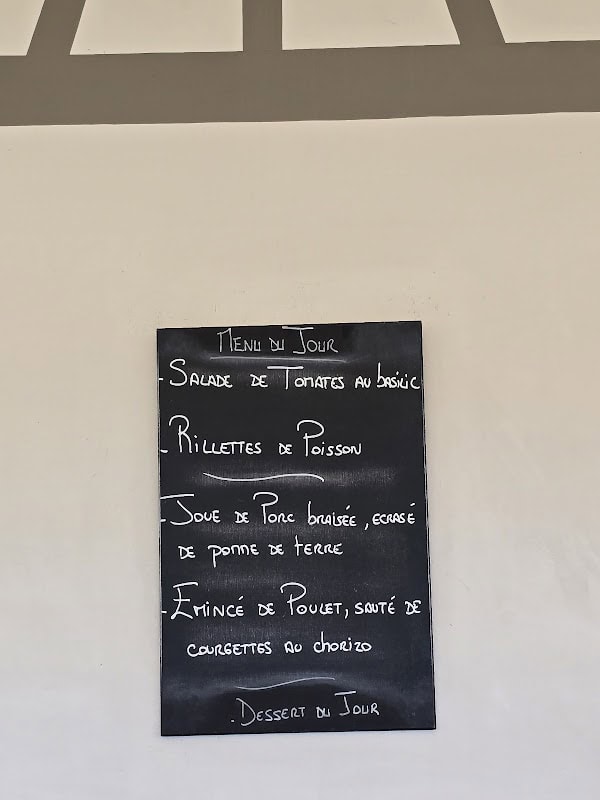 Menu du Jour
- Salade de Tomates au basilic
- Rillettes de Poisson
- Joue de Porc braisée, ecrasé
de pomme de terre
- Emincé de Poulet, sauté de
courgettes au chorizo
. Dessert du Jour